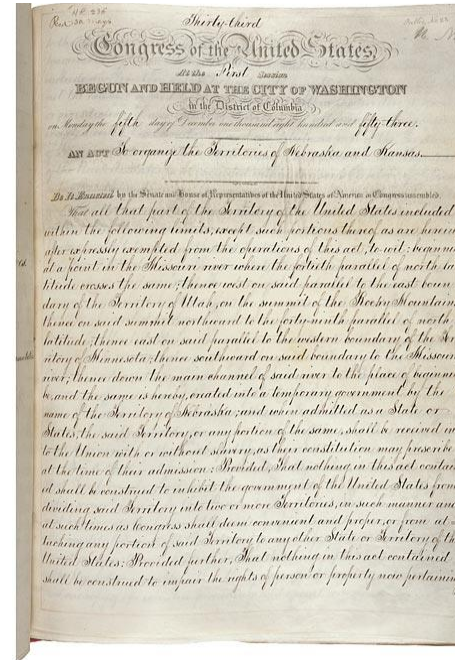 Thirty-third
Congress of the United States,
At the First Session
BEGUN AND HELD AT THE CITY OF WASHINGTON
in the District of Columbia
on Monday the fifth day of December one thousand eight hundred and fifty-three.
AN ACT To organize the Territories of Nebraska and Kansas.
Be it enacted by the Senate and House of Representatives of the United States of America in Congress assembled,
That all that part of the Territory of the United States included
within the following limits, except such portions thereof as are herein
after expressly exempted from the operations of this act, to wit: beginning
at a point in the Missouri river where the fortieth parallel of north la-
titude crosses the same; thence west on said parallel to the east boun-
dary of the Territory of Utah, on the summit of the Rocky Mountains
thence on said summit northward to the forty-ninth parallel of north
latitude; thence east on said parallel to the western boundary of the Ter
ritory of Minnesota; thence southward on said boundary to the Missouri
river; thence down the main channel of said river to the place of beginn
be, and the same is hereby, created into a temporary government by the
name of the Territory of Nebraska; and when admitted as a State or
States, the said Territory, or any portion of the same, shall be received in
to the Union with or without slavery, as their constitution may prescribe
at the time of their admission: Provided, That nothing in this act contain
ed shall be construed to inhibit the government of the United States from
dividing said Territory into two or more Territories, in such manner and
at such times as Congress shall deem convenient and proper, or from at-
taching any portion of said Territory to any other State or Territory of the
United States: Provided further, That nothing in this act contained
shall be construed to impair the rights of person or property now pertainin